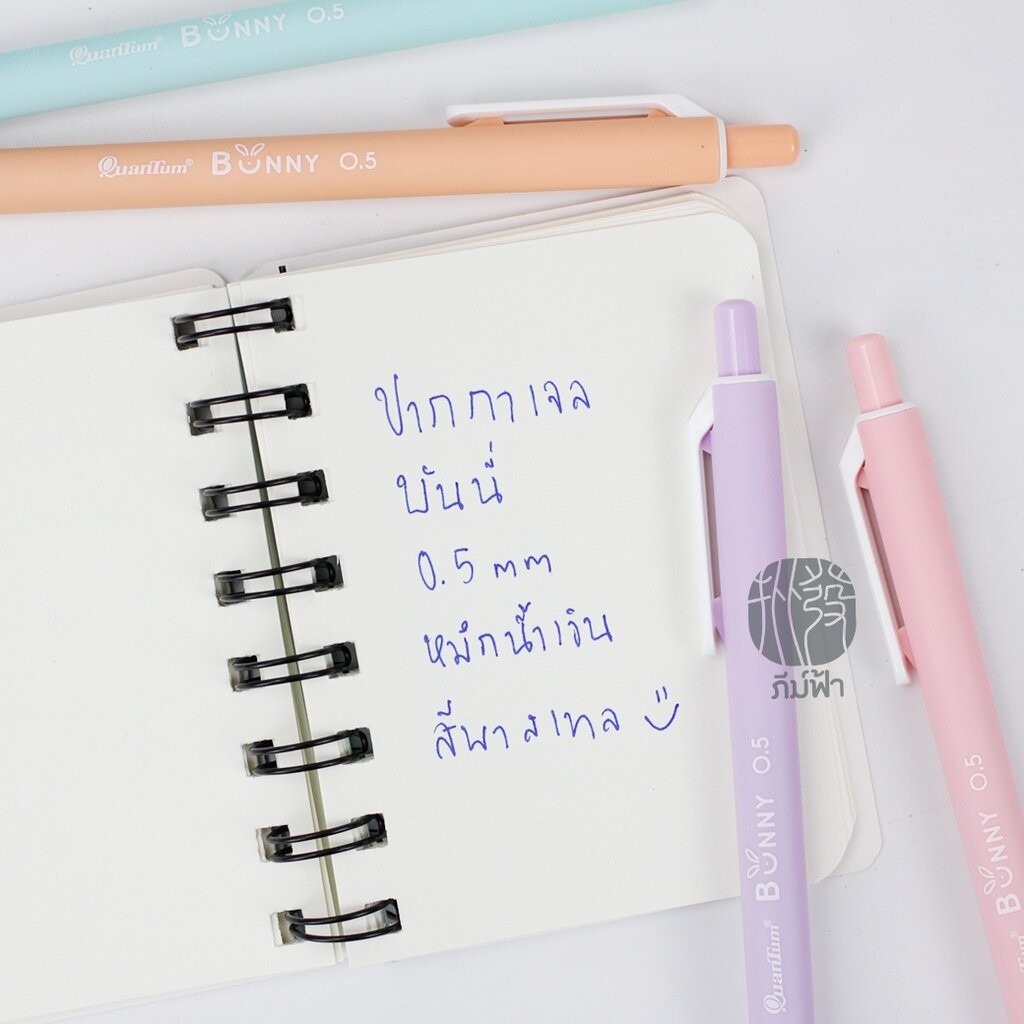 QuanTum® BUNNY 0.5
QuanTum® BUNNY 0.5
ปากกาเจล
บันนี่
0.5 mm
หมึกน้ำเงิน
สีพาสเทล
發
ภีม์ฟ้า
QuanTum® BUNNY 0.5
QuanTum® BUNNY 0.5